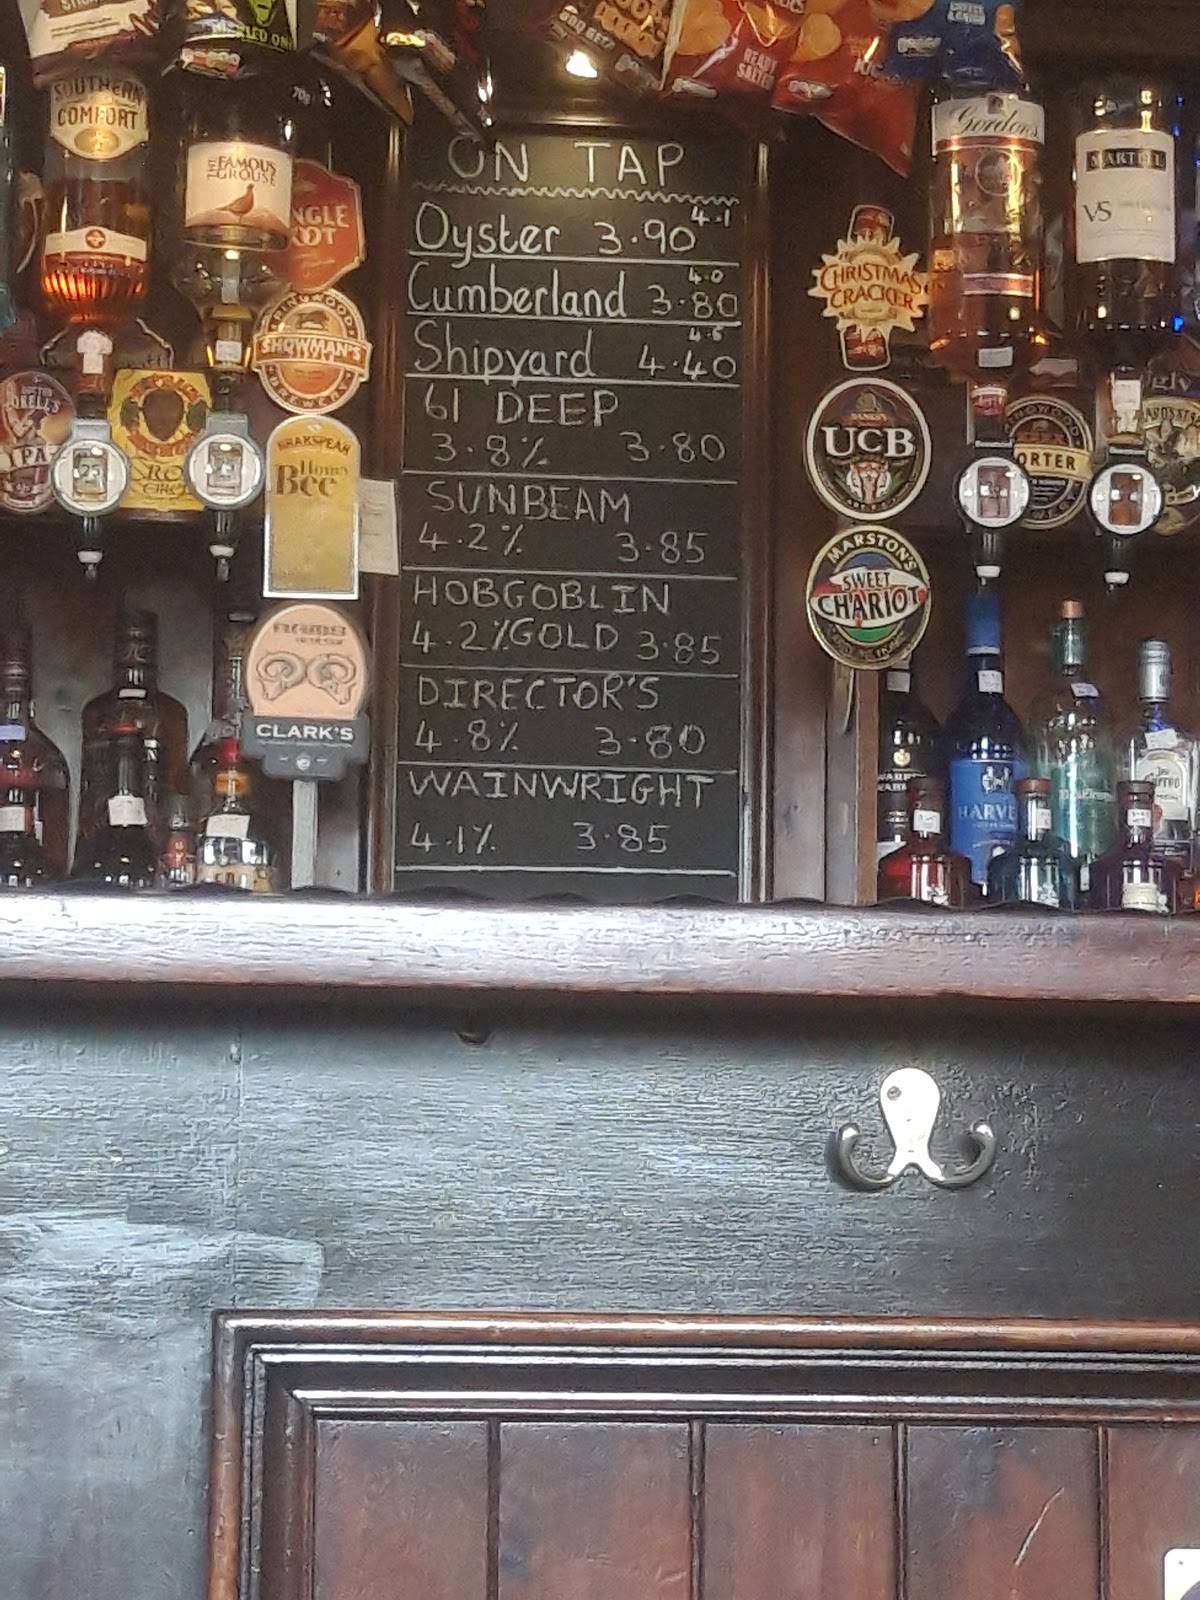 ON TAP
Oyster 3.90 4.1
Cumberland 3.80 4.0
Shipyard 4.40 4.5
61 DEEP
3.8% 3.80
SUNBEAM
4.2% 3.85
HOBGOBLIN
4.2% GOLD 3.85
DIRECTOR'S
4.8% 3.80
WAINWRIGHT
4.1% 3.85
SOUTHERN
COMFORT
THE FAMOUS
GROUSE
RINGWOOD
SHOWMAN'S
BREWERY
BRAKSPEAR
Honey
Bee
CLARK'S
IPA
READY
SALTED
Gordon's
MARTELL
VS
CHRISTMAS
CRACKER
BANKS'S
UCB
MARSTON'S
SWEET
CHARIOT
ORTER
HARVE
25